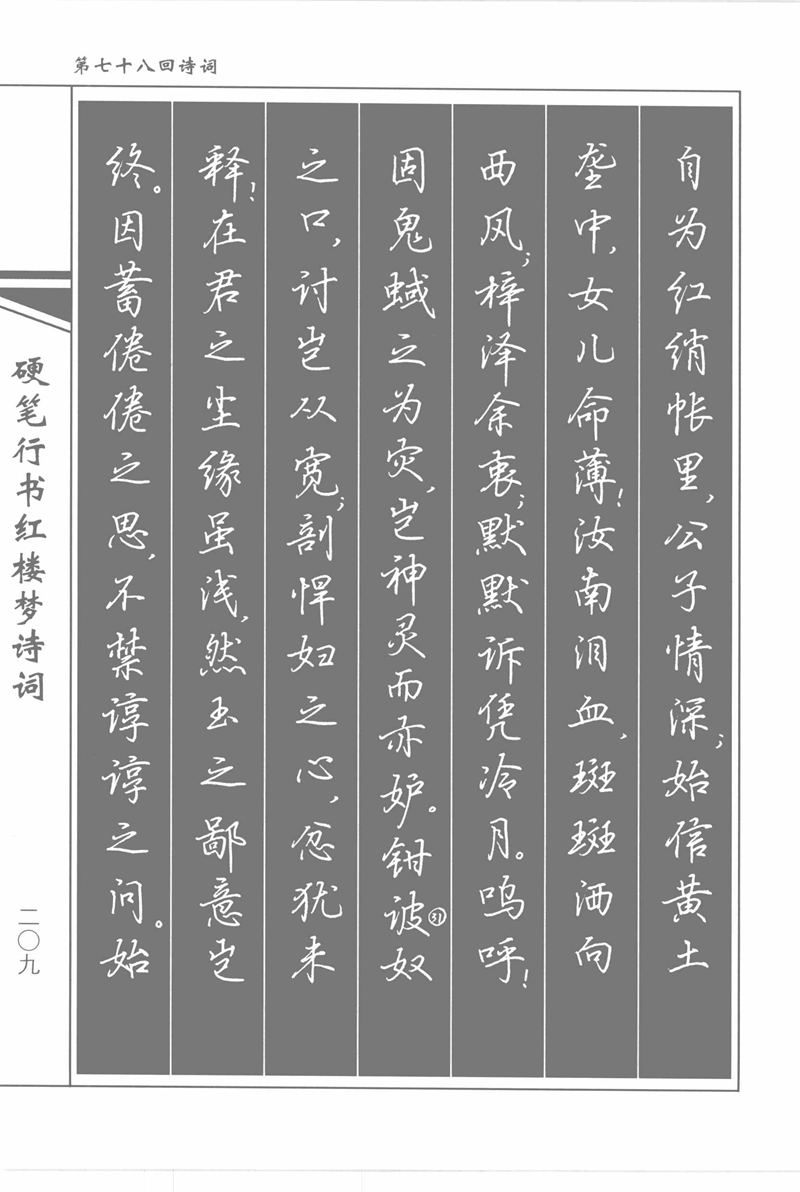 第七十八回诗词
自为红绡帐里，公子情深；始信黄土
垄中，女儿命薄！汝南泪血，斑斑洒向
西风；梓泽余衷，默默诉凭冷月。呜呼！
固鬼蜮之为灾，岂神灵而亦妒。钳诐奴
之口，讨岂从宽；剖悍妇之心，忿犹未
释！在君之尘缘虽浅，然玉之鄙意岂
终。因蓄惓惓之思，不禁谆谆之问。始
硬笔行书红楼梦诗词
二〇九